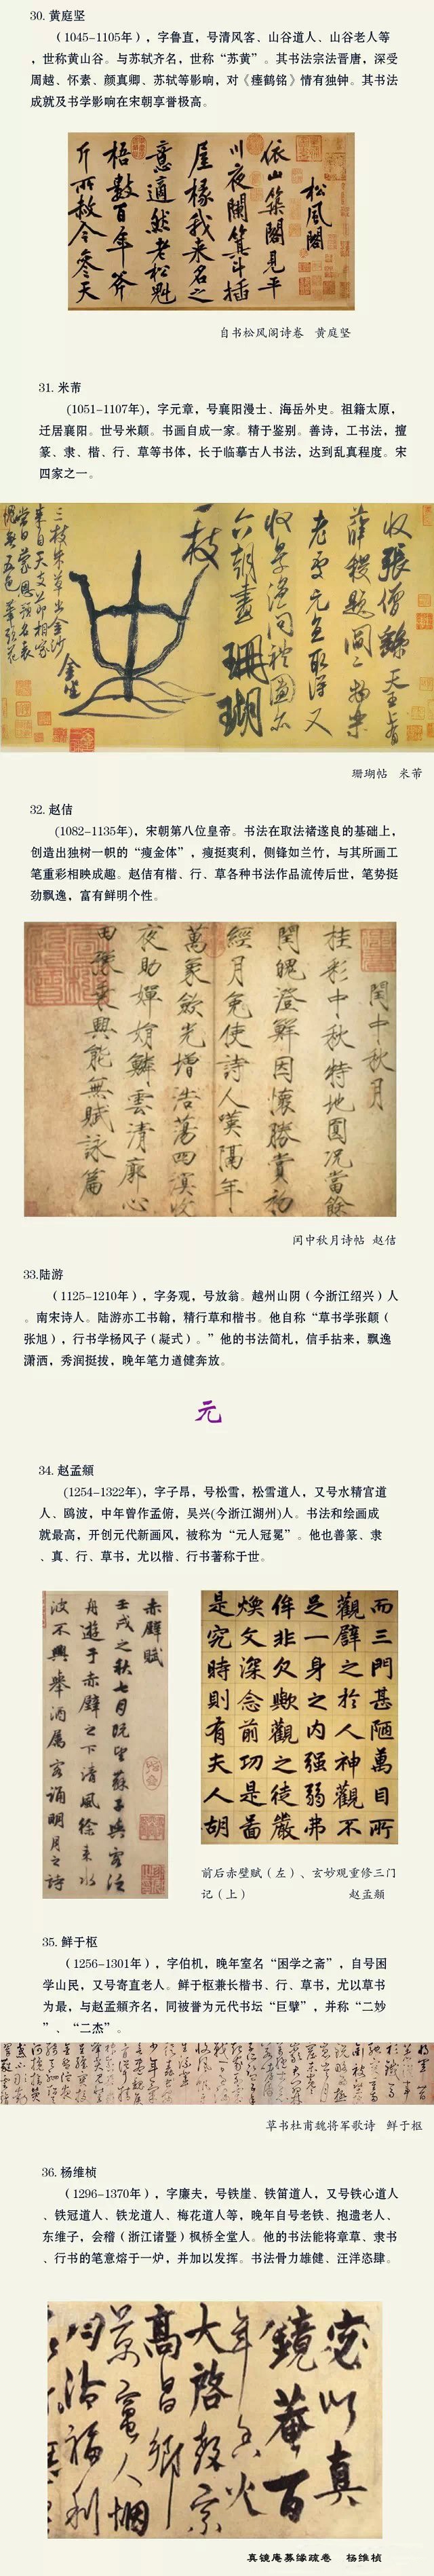 30. 黄庭坚
（1045-1105年），字鲁直，号清风客、山谷道人、山谷老人等
，世称黄山谷。与苏轼齐名，世称“苏黄”。其书法宗法晋唐，深受
周越、怀素、颜真卿、苏轼等影响，对《瘗鹤铭》情有独钟。其书法
成就及书学影响在宋朝享誉极高。
松風閣
依山築閣見平
川夜闌箕斗插
屋椽我来名之
意適然老松魁
梧數百年斧
斤所赦今參天
自书松风阁诗卷 黄庭坚
31. 米芾
(1051-1107年)，字元章，号襄阳漫士、海岳外史。祖籍太原，
迁居襄阳。世号米颠。书画自成一家。精于鉴别。善诗，工书法，擅
篆、隶、楷、行、草等书体，长于临摹古人书法，达到乱真程度。宋
四家之一。
收張僧繇天王
薛稷題閻二物樂
老處元直取得又
收景温問禮圖亦
六朝畫珊瑚
一枝
三枝朱草出金沙
来自天支節相家
當日蒙恩預名表
愧無五色筆頭花
金坐
珊瑚帖 米芾
32. 赵佶
(1082-1135年)，宋朝第八位皇帝。书法在取法褚遂良的基础上，
创造出独树一帜的“瘦金体”，瘦挺爽利，侧锋如兰竹，与其所画工
笔重彩相映成趣。赵佶有楷、行、草各种书法作品流传后世，笔势挺
劲飘逸，富有鲜明个性。
閏中秋月
桂彩中秋特地圓况當餘
閏魄澄鮮因懷勝賞初
經月免使詩人嘆隔年
萬象歛光增浩蕩四溟收
夜助嬋娟鱗雲清廓心
田豫乘興能無賦詠篇
闰中秋月诗帖 赵佶
33.陆游
（1125-1210年），字务观，号放翁。越州山阴（今浙江绍兴）人
。南宋诗人。陆游亦工书翰，精行草和楷书。他自称“草书学张颠（
张旭），行书学杨风子（凝式）。”他的书法简札，信手拈来，飘逸
潇洒，秀润挺拔，晚年笔力遒健奔放。
元
34. 赵孟頫
(1254-1322年)，字子昂，号松雪，松雪道人，又号水精宫道
人、鸥波，中年曾作孟俯，吴兴(今浙江湖州)人。书法和绘画成
就最高，开创元代新画风，被称为“元人冠冕”。他也善篆、隶
、真、行、草书，尤以楷、行书著称于世。
赤壁賦
壬戌之秋七月既望蘇子與客泛
舟遊于赤壁之下清風徐来水
波不興舉酒屬客誦明月之詩
而三門甚陋萬目所
觀壁之於人神觀不
足一身之内强弱弗
侔非欠歟觀之徒嚴
煥文深念前功是啚
是究時則有夫人胡
前后赤壁赋（左）、玄妙观重修三门
记（上） 赵孟頫
35. 鲜于枢
（1256-1301年），字伯机，晚年室名“困学之斋”，自号困
学山民，又号寄直老人。鲜于枢兼长楷书、行、草书，尤以草书
为最，与赵孟頫齐名，同被誉为元代书坛“巨擘”，并称“二妙
”、“二杰”。
草书杜甫魏将军歌诗 鲜于枢
36. 杨维桢
（1296-1370年），字廉夫，号铁崖、铁笛道人，又号铁心道人
、铁冠道人、铁龙道人、梅花道人等，晚年自号老铁、抱遗老人、
东维子，会稽（浙江诸暨）枫桥全堂人。他的书法能将章草、隶书
、行书的笔意熔于一炉，并加以发挥。书法骨力雄健、汪洋恣肆。
真镜庵募缘疏卷 杨维桢